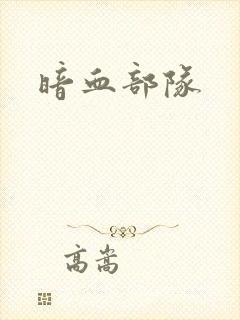 暗血部隊
高嵩